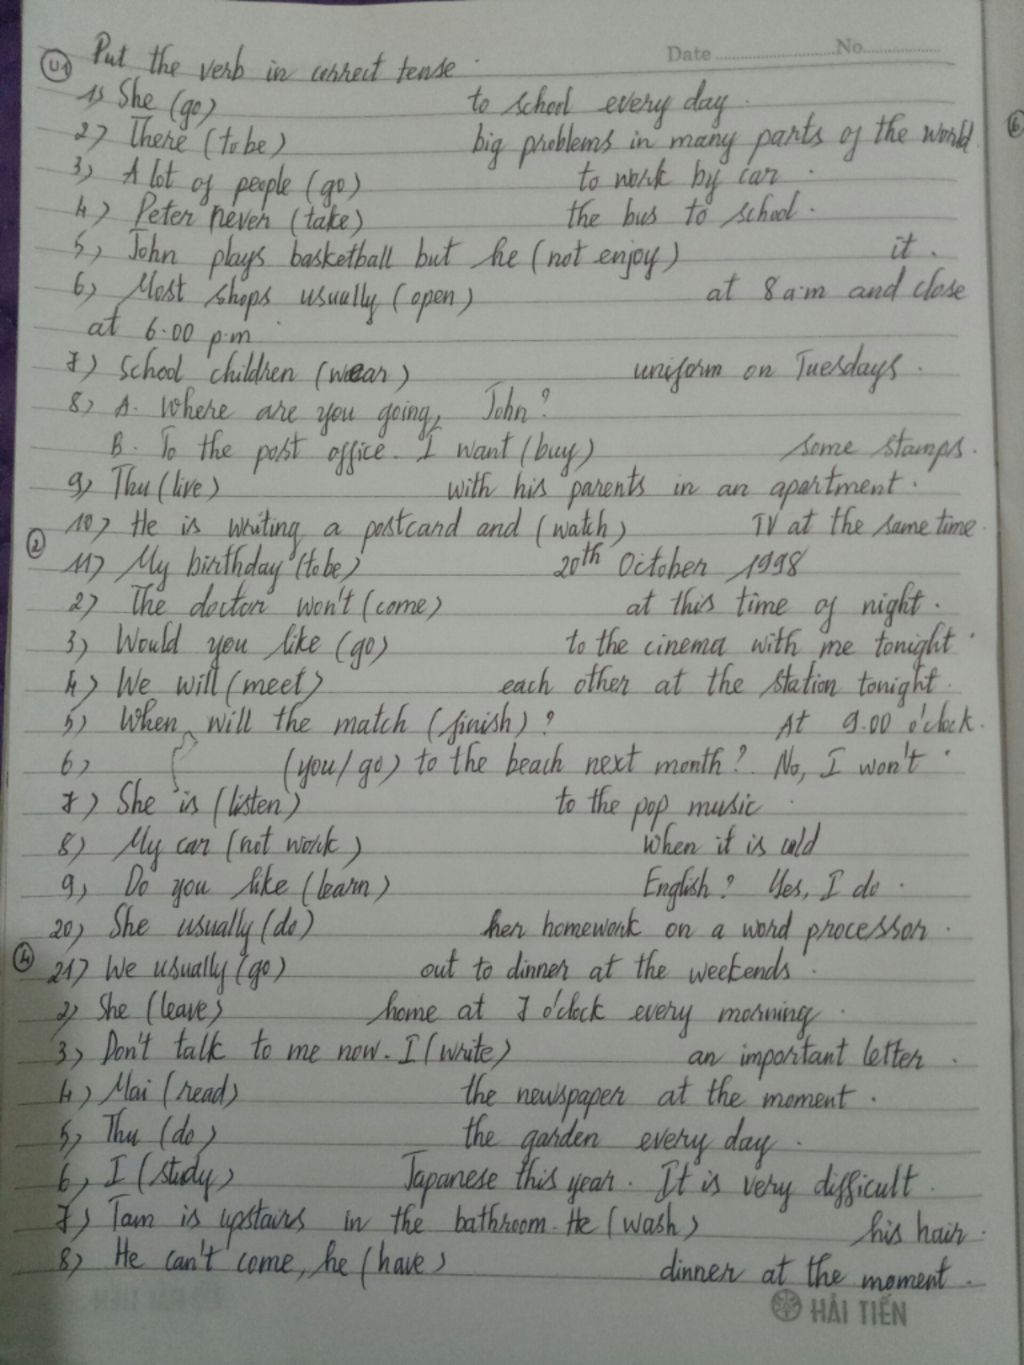 U1 Put the verb in correct tense.
Date No.
1) She (go) to school every day.
2) There (to be) big problems in many parts of the world.
3) A lot of people (go) to work by car.
4) Peter never (take) the bus to school.
5) John plays basketball but he (not enjoy) it.
6) Most shops usually (open) at 8 a.m and close
at 6.00 p.m
7) School children (wear) uniform on Tuesdays.
8) A. Where are you going, John?
B. To the post office. I want (buy) some stamps.
9) Thu (live) with his parents in an apartment.
10) He is writing a postcard and (watch) TV at the same time.
2
11) My birthday (to be) 20th October 1998
2) The doctor won't (come) at this time of night.
3) Would you like (go) to the cinema with me tonight.
4) We will (meet) each other at the station tonight.
5) When will the match (finish)? At 9.00 o'clock.
6) (you/go) to the beach next month? No, I won't.
7) She is (listen) to the pop music.
8) My car (not work) when it is cold
9) Do you like (learn) English? Yes, I do.
20) She usually (do) her homework on a word processor.
4
21) We usually (go) out to dinner at the weekends.
2) She (leave) home at 7 o'clock every morning.
3) Don't talk to me now. I (write) an important letter.
4) Mai (read) the newspaper at the moment.
5) Thu (do) the garden every day.
6) I (study) Japanese this year. It is very difficult.
7) Tam is upstairs in the bathroom. He (wash) his hair.
8) He can't come, he (have) dinner at the moment.
HẢI TIẾN
6